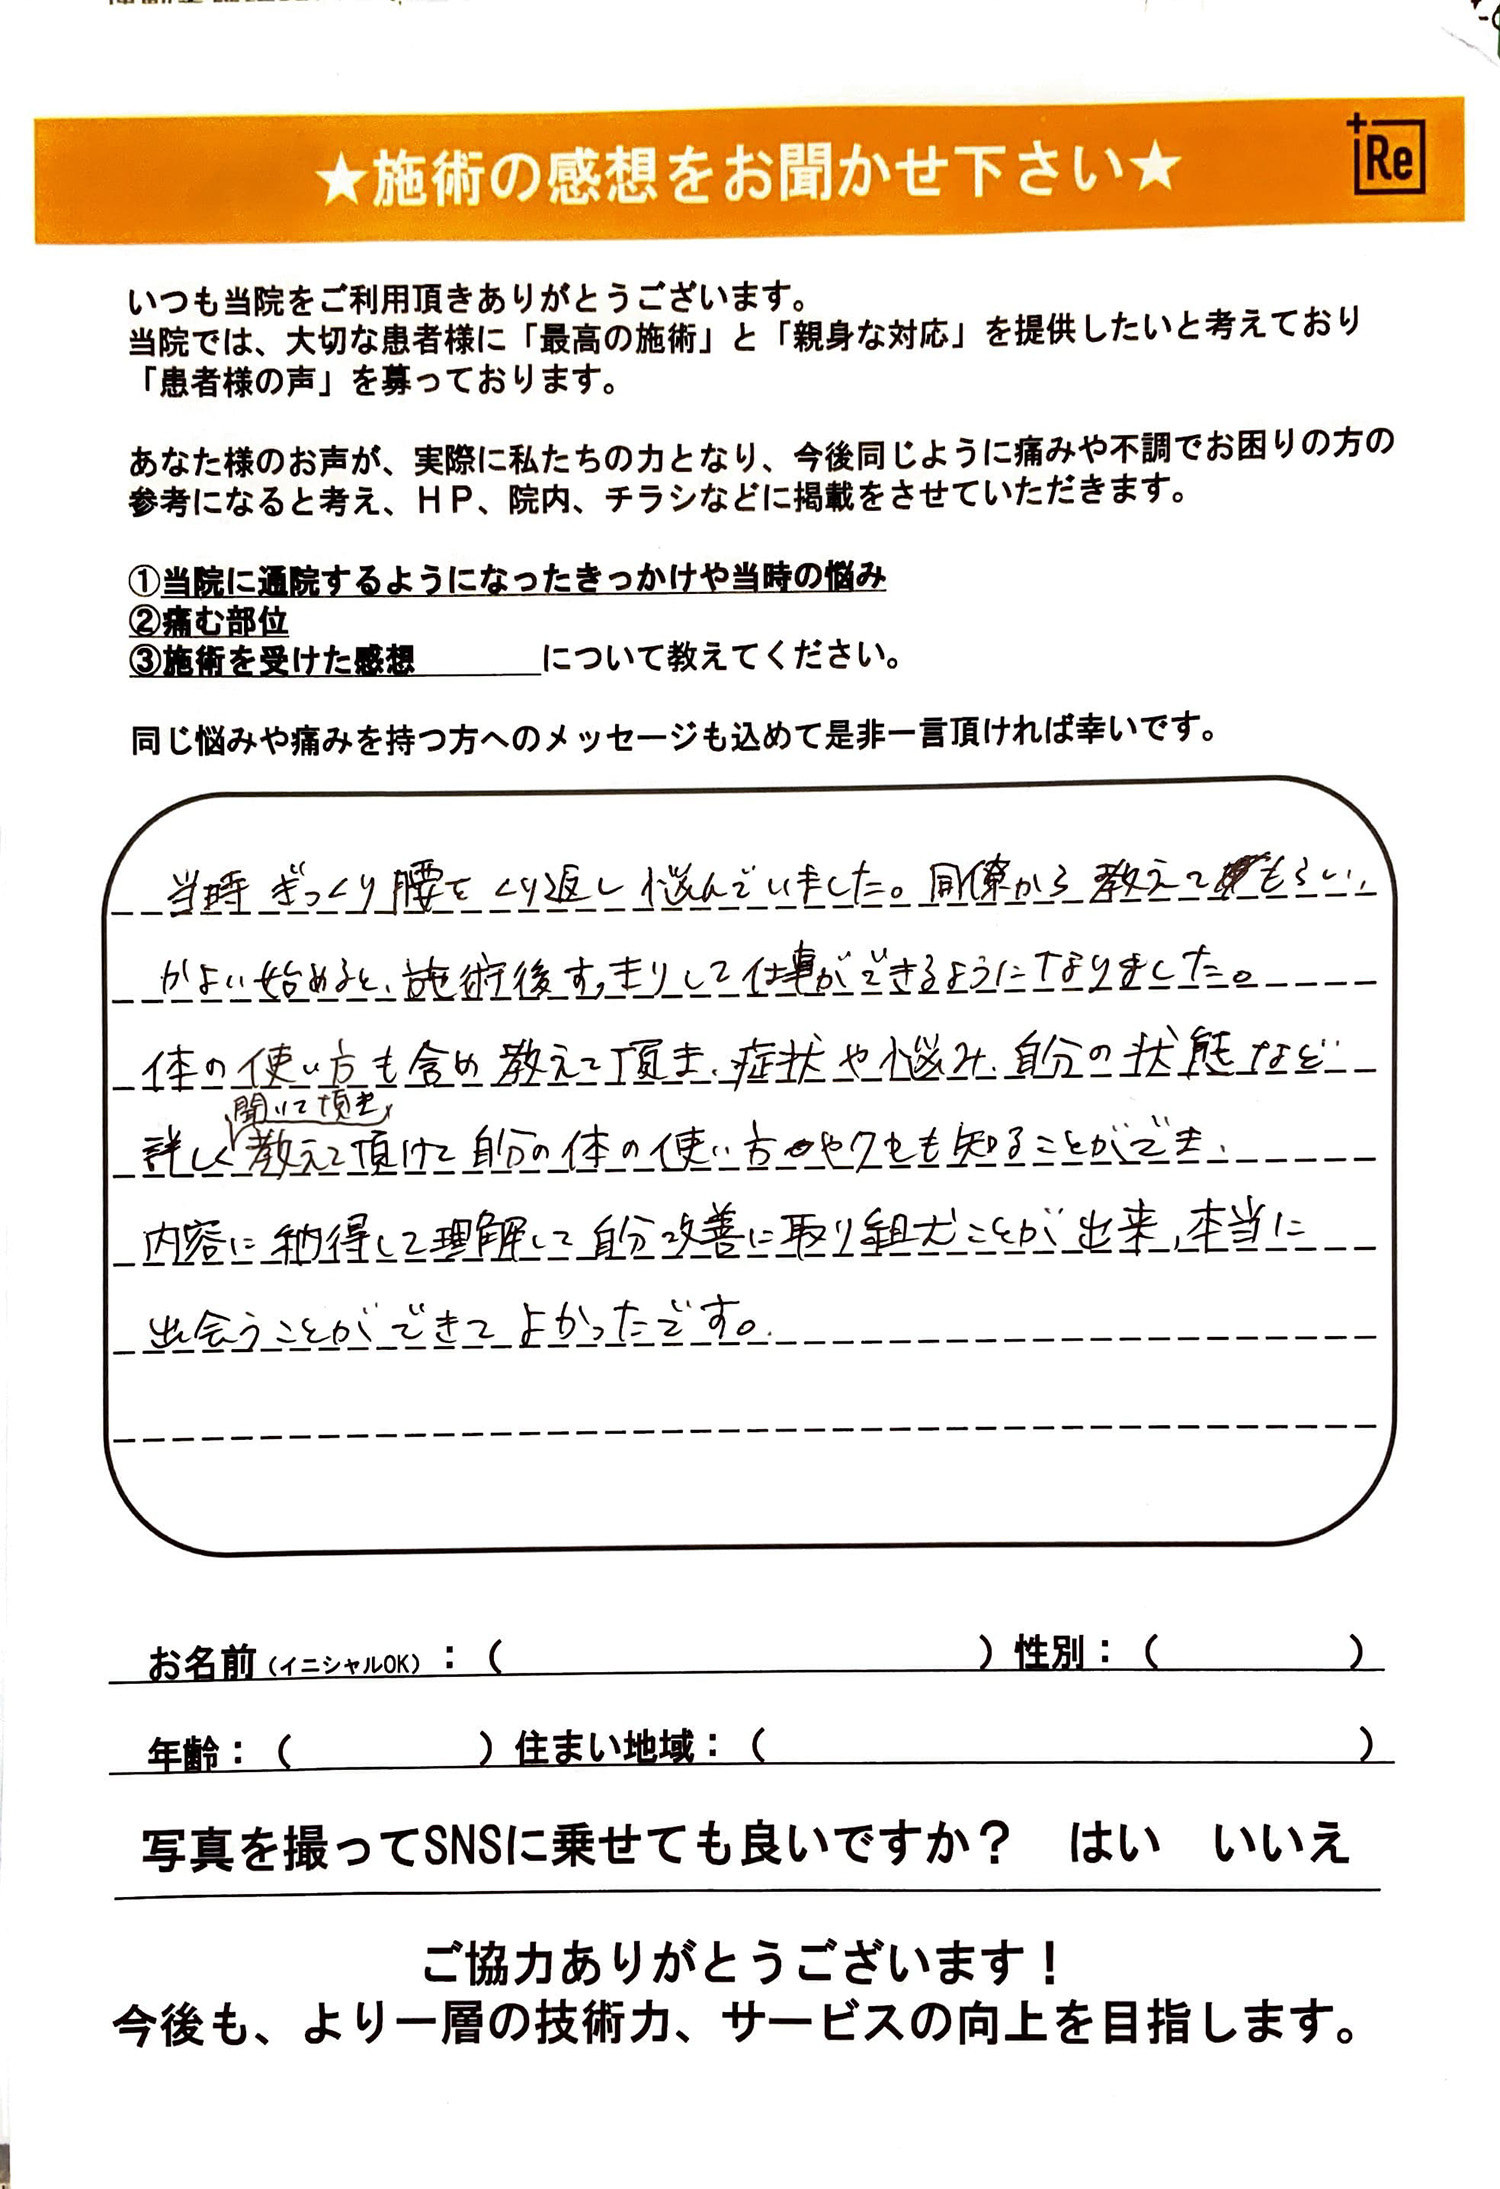 ★施術の感想をお聞かせ下さい★
+Re
いつも当院をご利用頂きありがとうございます。
当院では、大切な患者様に「最高の施術」と「親身な対応」を提供したいと考えており
「患者様の声」を募っております。
あなた様のお声が、実際に私たちの力となり、今後同じように痛みや不調でお困りの方の
参考になると考え、ＨＰ、院内、チラシなどに掲載をさせていただきます。
①当院に通院するようになったきっかけや当時の悩み
②痛む部位
③施術を受けた感想　　　　について教えてください。
同じ悩みや痛みを持つ方へのメッセージも込めて是非一言頂ければ幸いです。
当時ぎっくり腰をくり返し悩んでいました。同僚から教えてもらい、
かよい始めると、施術後すっきりして仕事ができるようになりました。
体の使い方も含め教えて頂き、症状や悩み、自分の状態など
聞いて頂き
詳しく教えて頂けて自分の体の使い方やクセも知ることができ、
内容に納得して理解して自分改善に取り組むことが出来、本当に
出会うことができてよかったです。
お名前（イニシャルOK）：（　　　　　）性別：（　　　）
年齢：（　　　）住まい地域：（　　　　　）
写真を撮ってSNSに乗せても良いですか？　はい　いいえ
ご協力ありがとうございます！
今後も、より一層の技術力、サービスの向上を目指します。